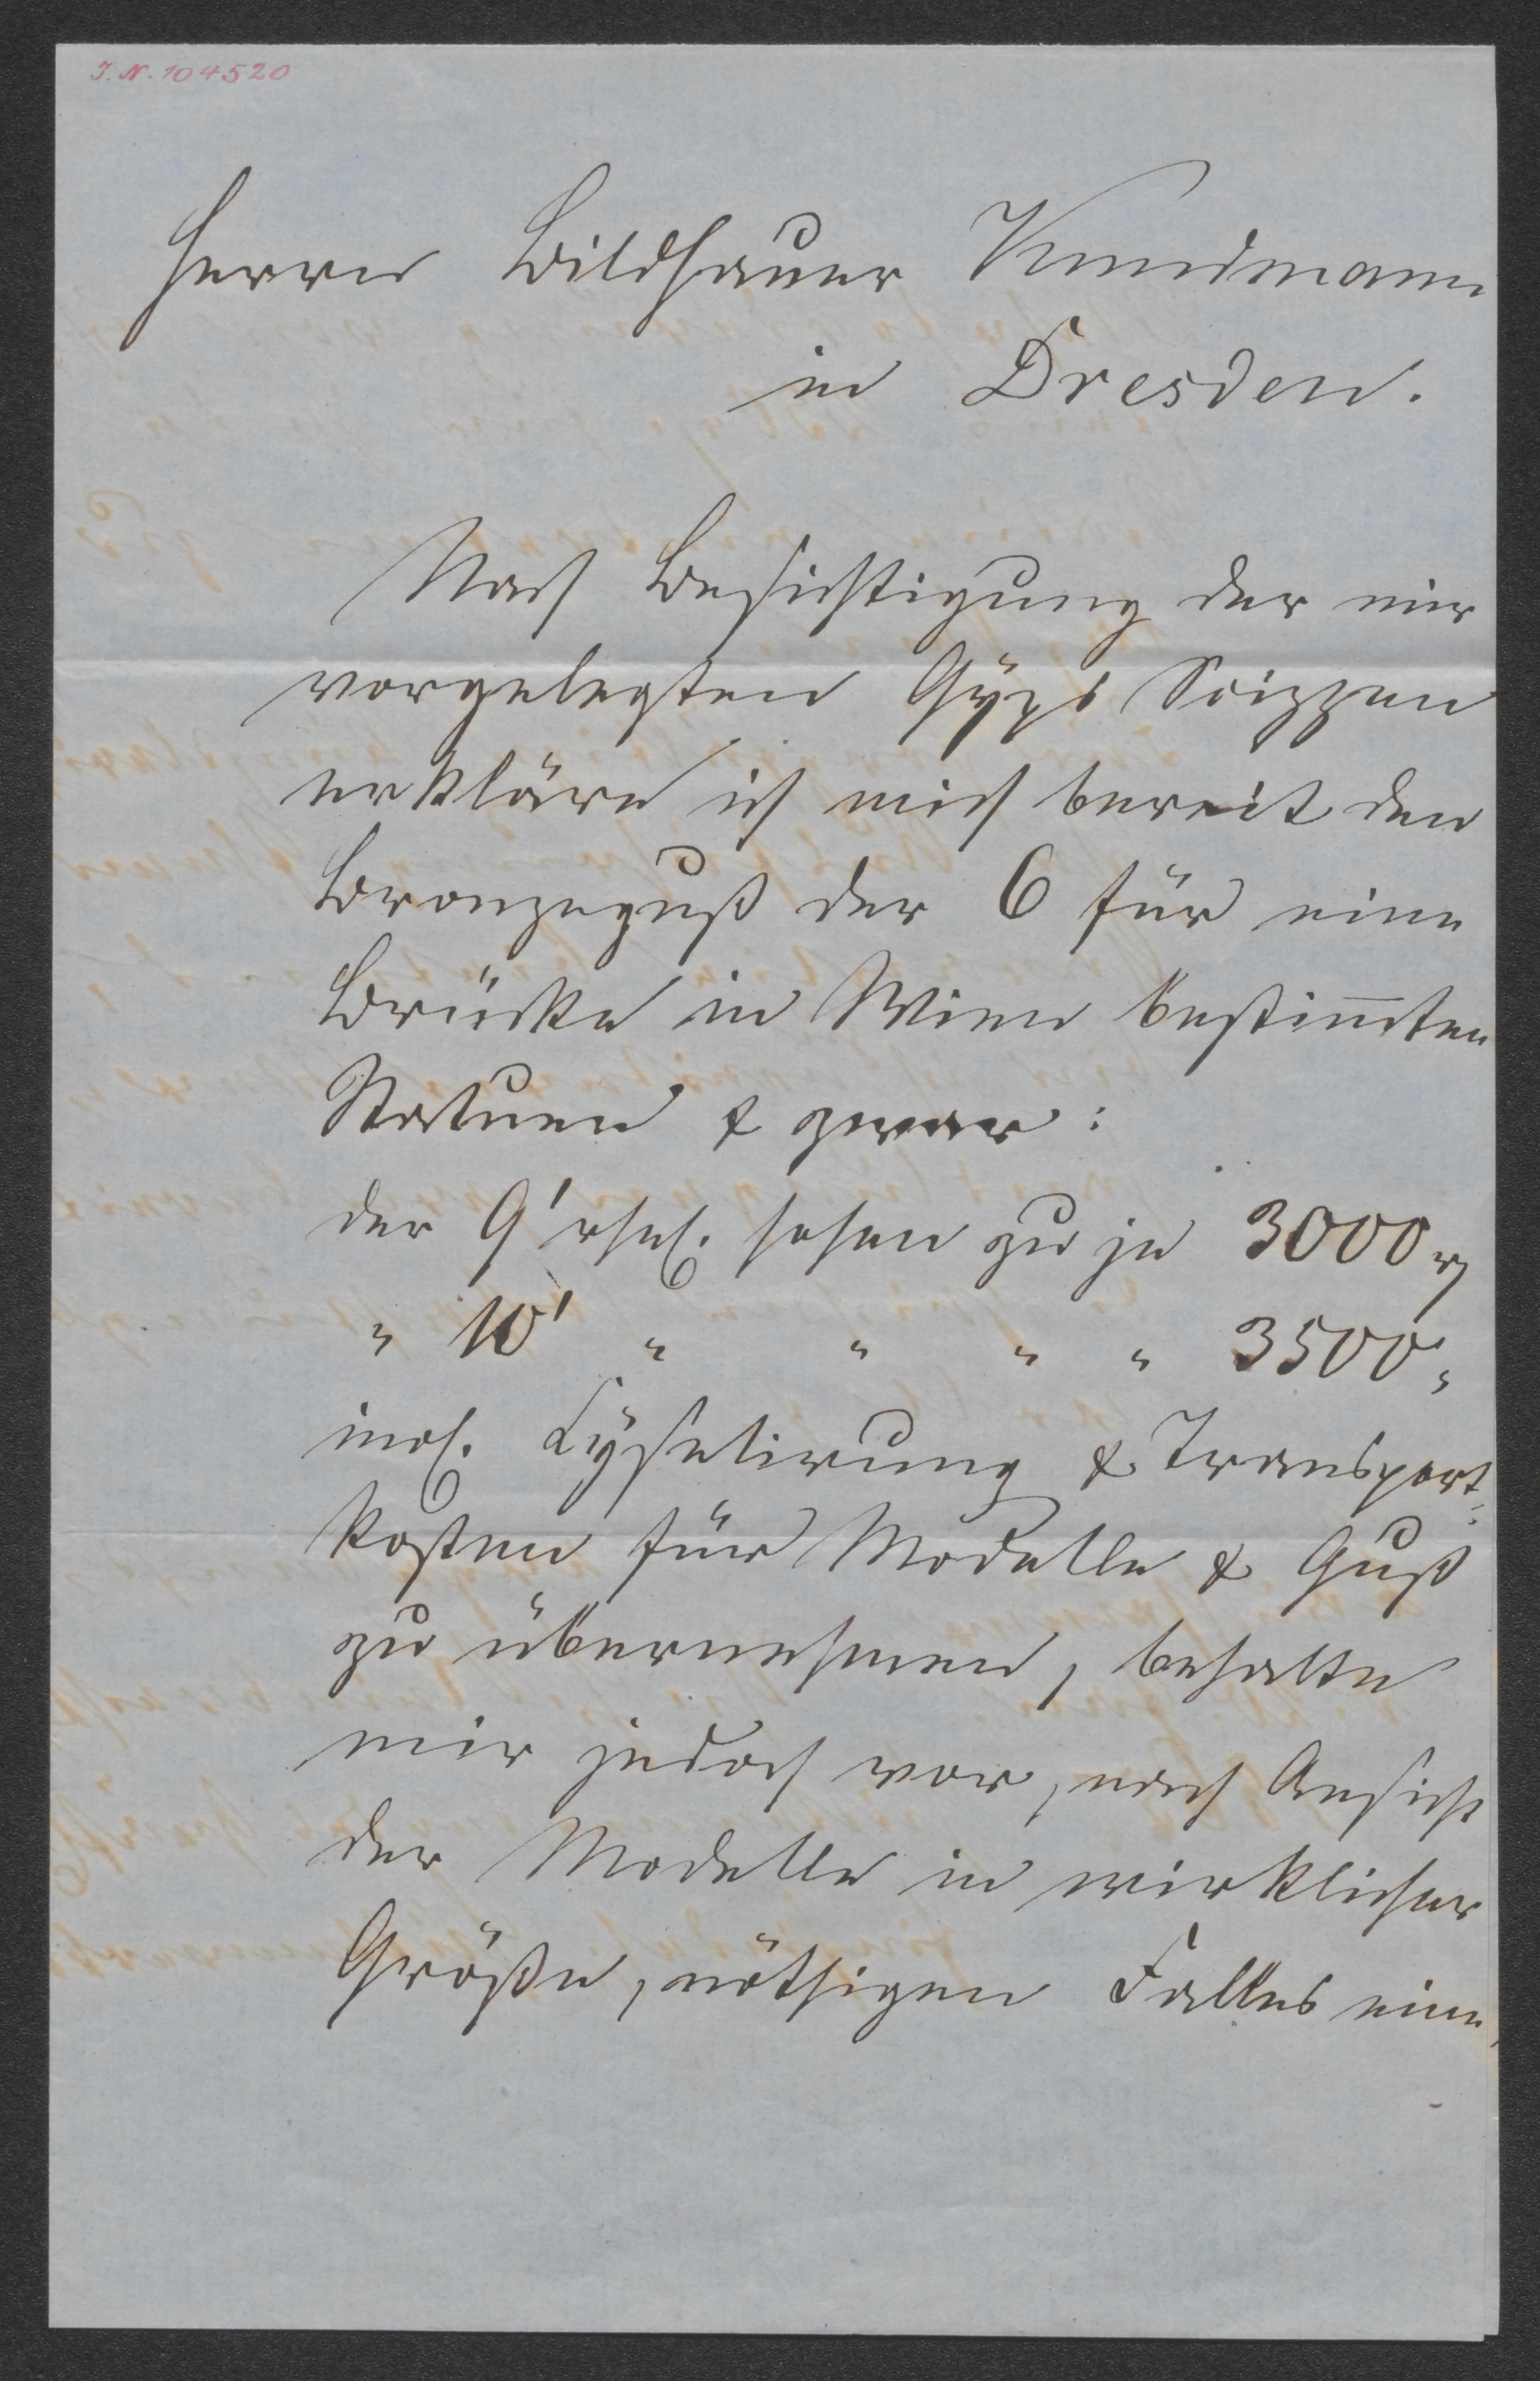 J.N. 104520
Herrn Bildhauer Kundmann
in Dresden.
Nach Besichtigung der mir
vorgelegten Gÿps Scizzen
erkläre ich mich bereit den
Bronzeguß der 6 für eine
Brücke in Wien bestim̅ten
Statuen & zwar:
der 9' rhnl. hohen zu je 3000 rh
" 10' " " " " 3500 "
incl. Cÿselirung & Transport-
kosten für Modelle & Guß
zu übernehmen, behalte
mir jedoch vor, nach Ansicht
der Modelle in wirklicher
Größe, nöthigen Falles eine